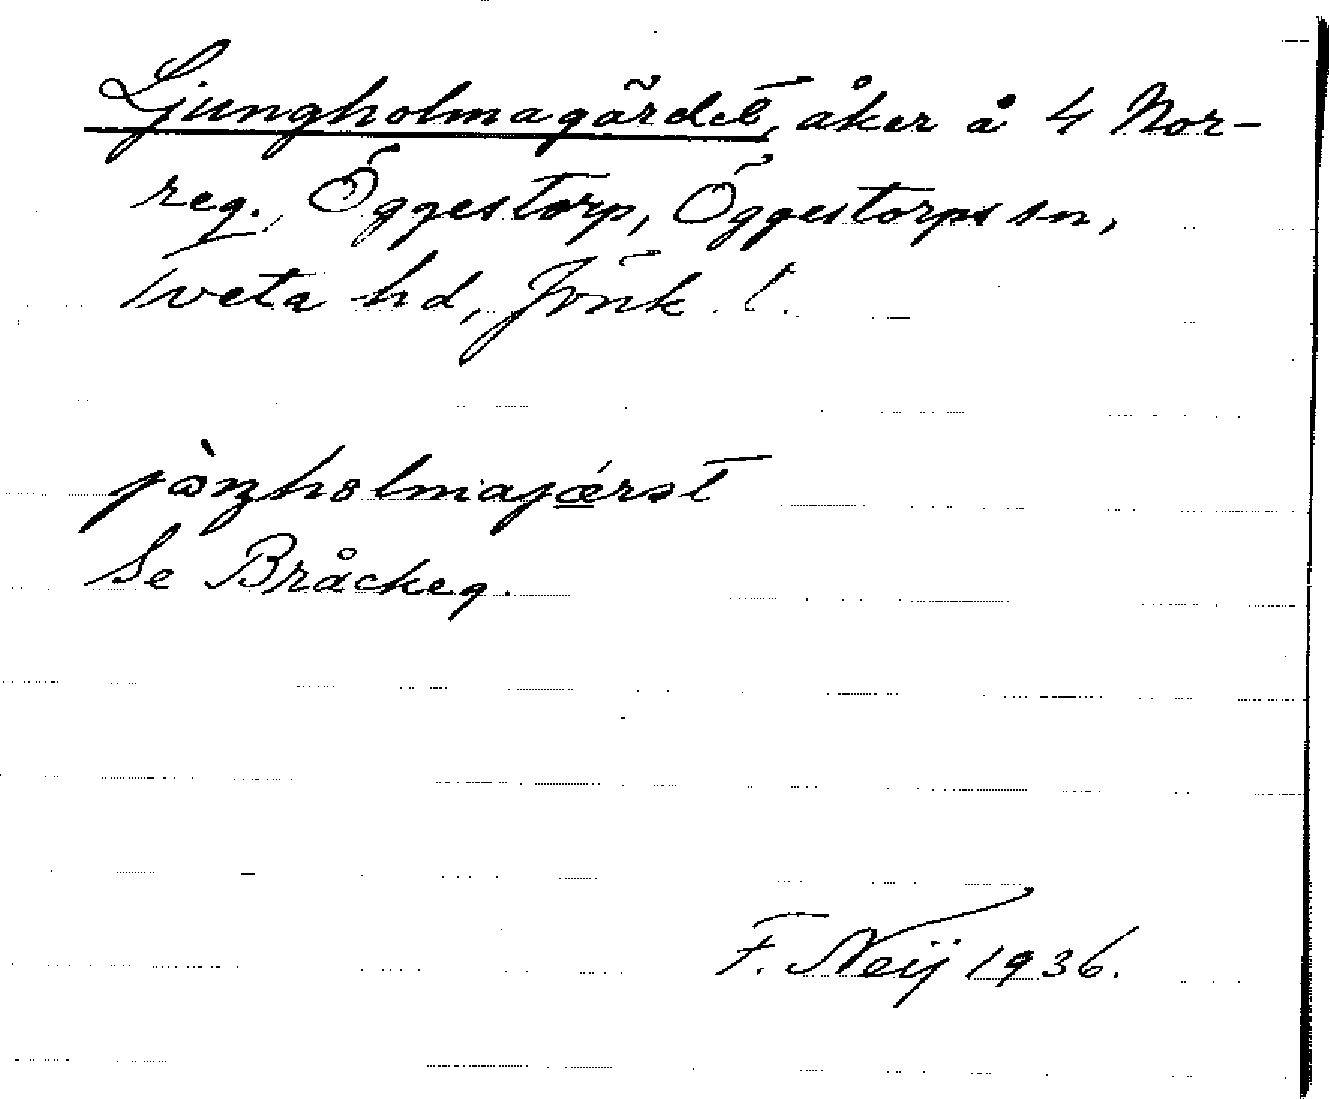 Ljungholmagärdet, åker å 4 Nor-
reg., Öggestorp, Öggestorps sn,
Tveta hd, Jönk. l.
jònholmajǽrət
Se Bråckeg.
F. Neij 1936.